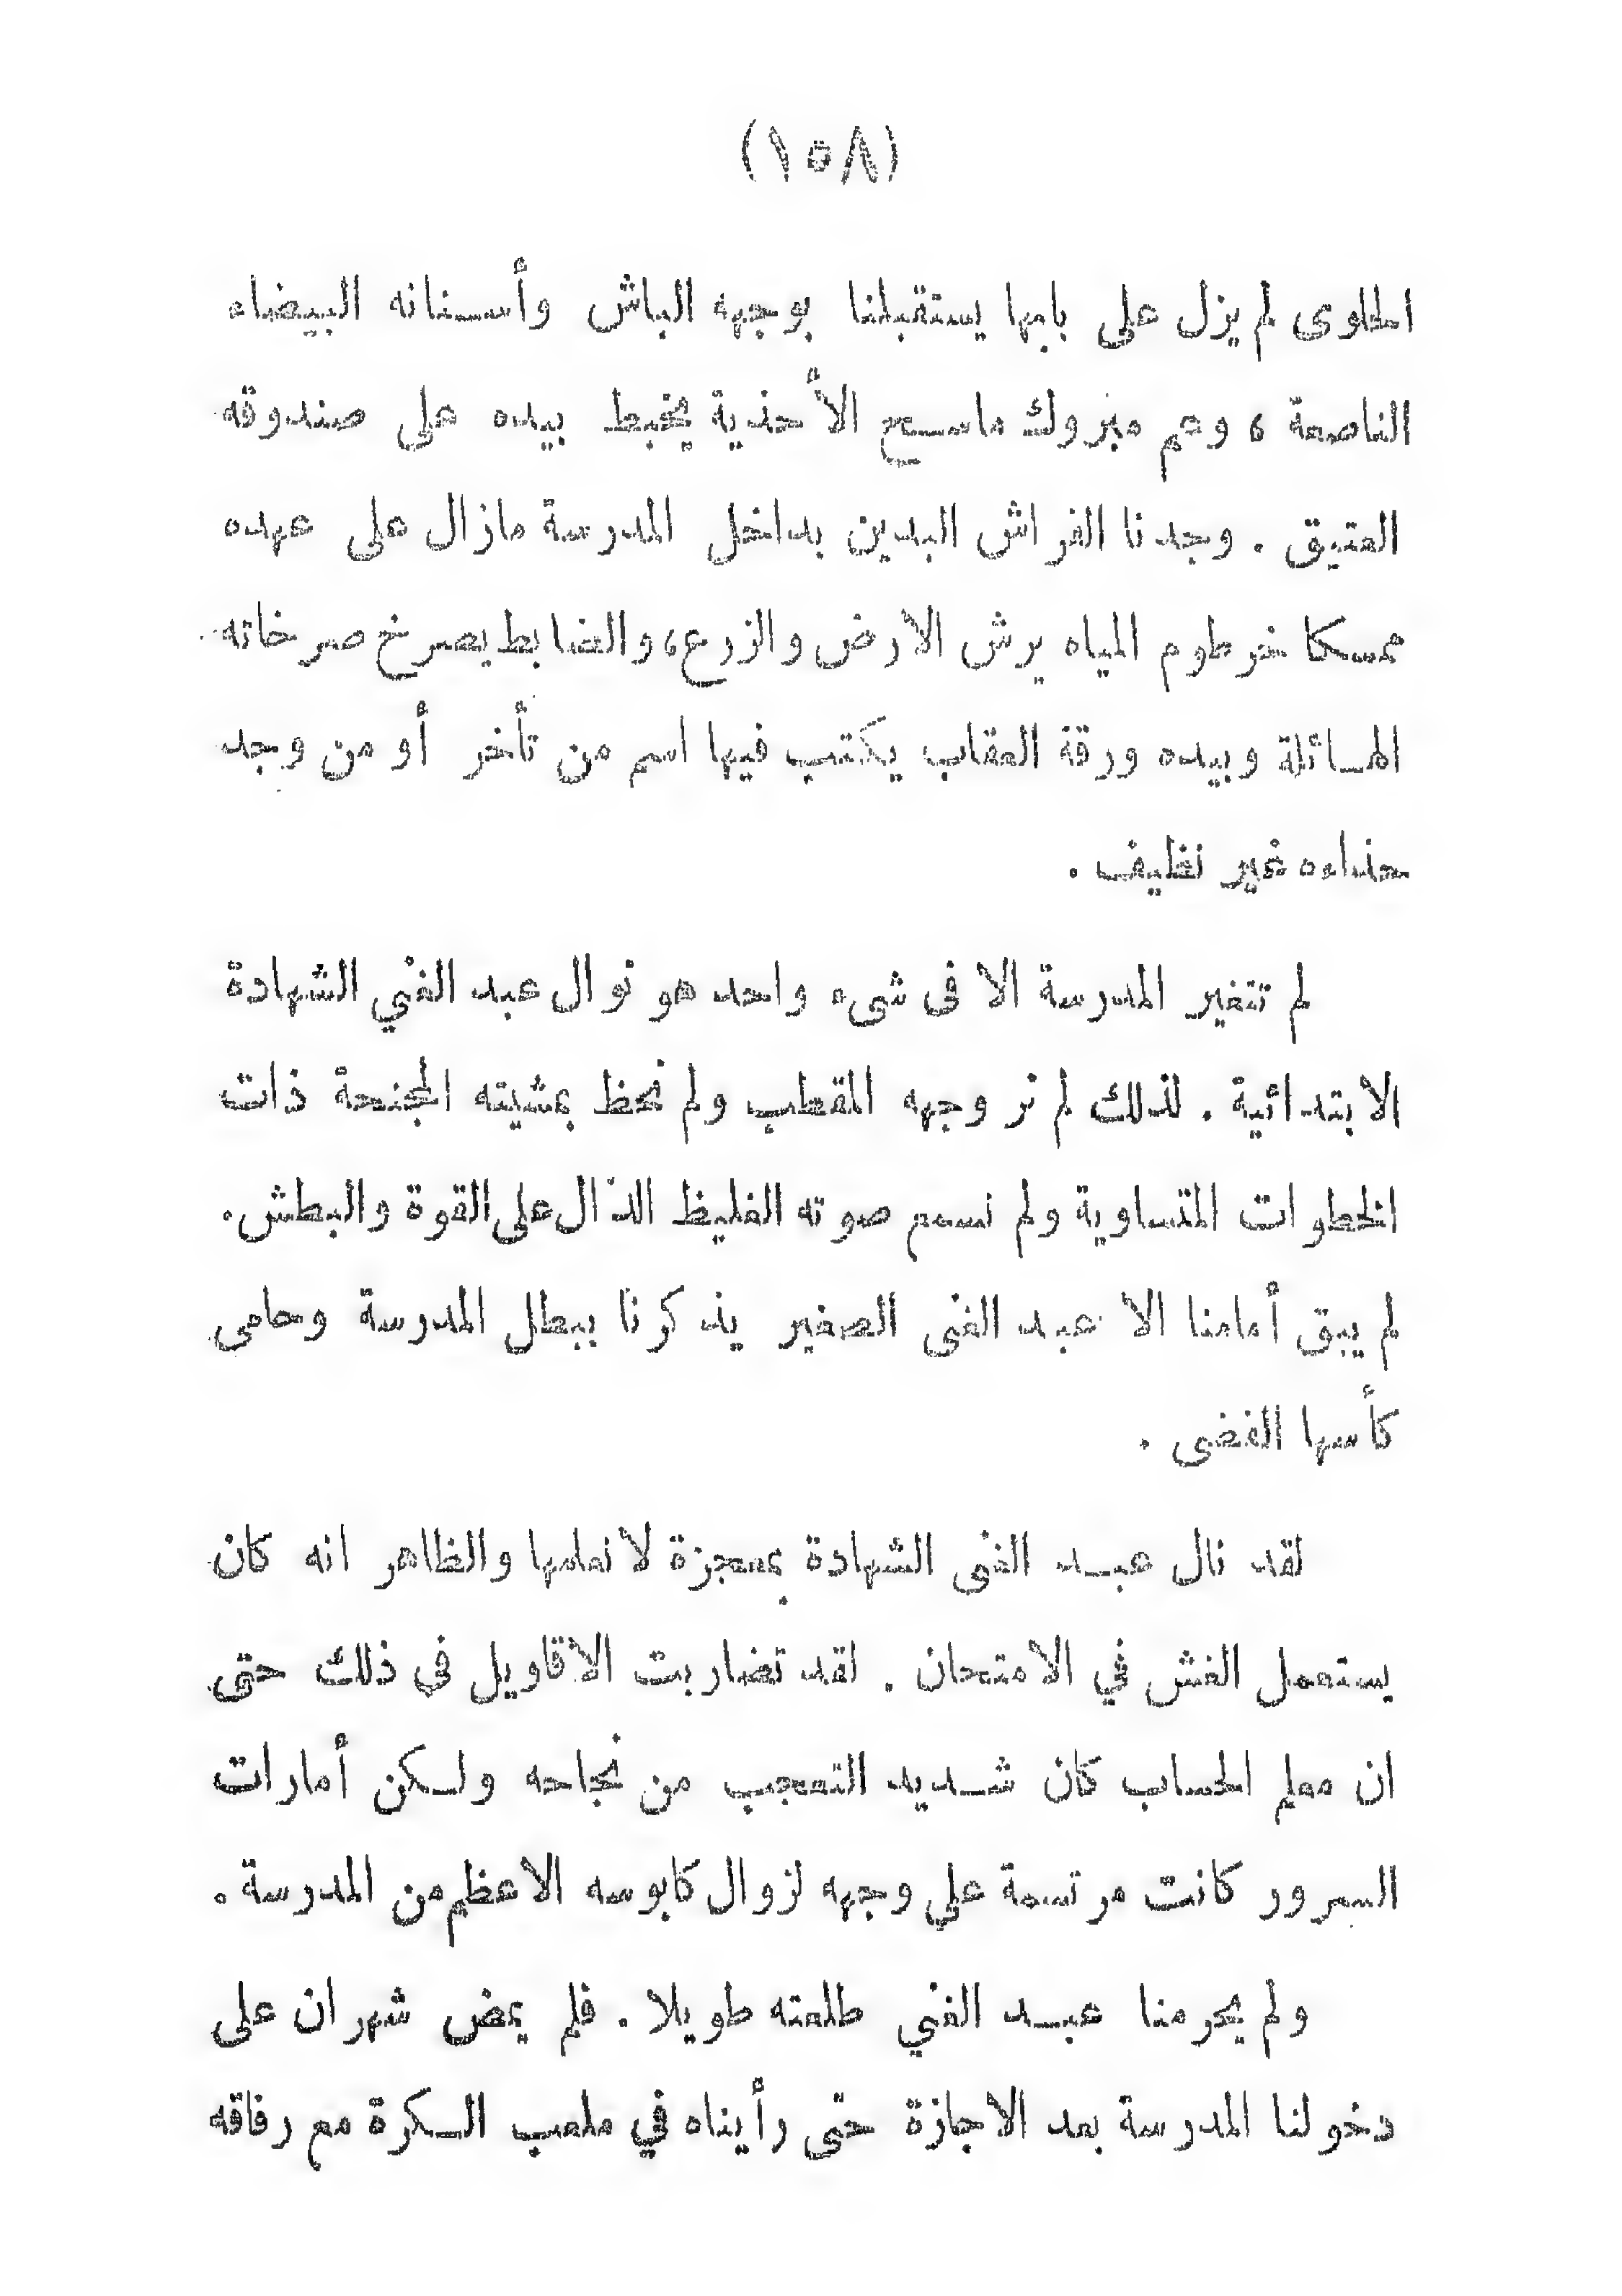 (١٥٨)
الحلوى لم يزل على بابها يستقبلنا بوجهه الباش وأسنانه البيضاء
الناصعة ، وعم مبروك ماسح الأحذية يخبط بيده على صندوقه
العتيق . وجدنا الفراش البدين بداخل المدرسة مازال على عهده
ممسكا خرطوم المياه يرش الارض والزرع، والضابط يصرخ صرخاته
الهائلة وبيده ورقة العقاب يكتب فيها اسم من تأخر أو من وجد
حذاءه غير نظيف .
لم تتغير المدرسة الا فى شىء واحد هو نوال عبد الغني الشهادة
الابتدائية . لذلك لم نر وجهه المقطب ولم نحظ بمشيته المجنحة ذات
الخطوات المتساوية ولم نسمع صوته الغليظ الدّال على القوة والبطش.
لم يبق أمامنا الا عبد الغنى الصغير يذكرنا ببطل المدرسة وحامى
كأسها الفضى .
لقد نال عبد الغنى الشهادة بمعجزة لا نعلمها والظاهر انه كان
يستعمل الغش في الامتحان . لقد تضاربت الاقاويل فى ذلك حتى
ان معلم الحساب كان شديد التعجب من نجاحه ولكن أمارات
السرور كانت مرتسمة على وجهه لزوال كابوسه الاعظم من المدرسة .
ولم يحرمنا عبد الغني طلعته طويلا . فلم يمض شهران على
دخولنا المدرسة بعد الاجازة حتى رأيناه في ملعب الكرة مع رفاقه